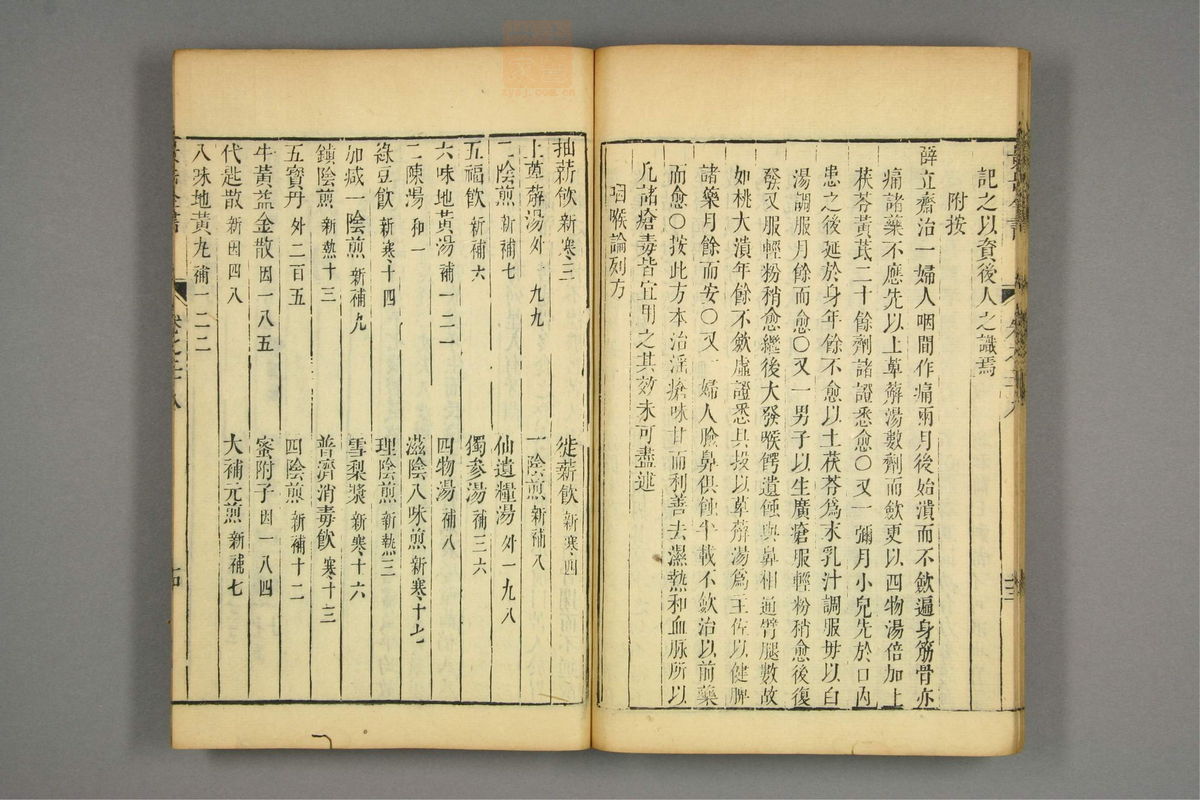 記之以資後人之識焉
附按
薛立齋治一婦人咽間作痛兩月後始潰而不斂遍身筋骨亦
痛諸藥不應先以上萆薢湯數劑而斂更以四物湯倍加土
茯苓黃芪二十餘劑諸證悉愈○又一彌月小兒先於口內
患之後延於身年餘不愈以土茯苓爲末乳汁調服毋以白
湯調服月餘而愈○又一男子以生廣瘡服輕粉稍愈後復
發又服輕粉稍愈繼後大發喉腭遺蝕與鼻相通臂腿數故
如桃大潰年餘不斂虛證悉具投以萆薢湯爲主佐以健脾
諸藥月餘而安○又一婦人臉鼻俱蝕半載不斂治以前藥
而愈○按此方本治淫瘡味甘而利善去濕熱和血脉所以
凡諸瘡毒皆宜用之其效未可盡述
咽喉論列方
抽薪飲新寒三
徙薪飲新寒四
土萆薢湯外一九九
一陰煎新補八
二陰煎新補七
仙遺糧湯外一九八
五福飲新補六
獨參湯補三六
六味地黃湯補一二一
四物湯補八
二陳湯和一
滋陰八味煎新寒十七
綠豆飲新寒十四
理陰煎新熱三
加減一陰煎新補九
雪梨漿新寒十六
鎮陰煎新熱十三
普濟消毒飲寒十三
五寶丹外二百五
四陰煎新補十二
牛黃益金散因一八五
蜜附子因一八四
代匙散新因四八
大補元煎新補七
八味地黃丸補一二二
卷之二十八